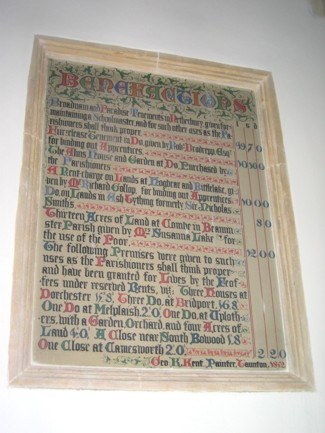 BENEFACTIONS
L s d
Broadnam and Paradise Tenements in Netherbury, given for
maintaining a Schoolmaster, and for such other uses as the Pa
rishioners shall think proper
for binding out Apprentices
The Alms House and Garden at Do. Purchased by
the Parishioners
A Rent-charge on Lands at Loghear and
ven by Mr Richard Gollop, for binding out Apprentices
Do. on Lands in Ash Tything formerly Sir Nicholas
Smiths
Thirteen Acres of Land at Combe in Beamin
ster Parish given by Mrs Susanna Lake for
the use of the Poor
The following Premises were given to such
uses as the Parishioners shall think proper
and have been granted for Lives by the Feof
fees under reserved Rents, viz. Three Houses at
Dorchester Three Do. at Bridport,
One Do. at Melplaish 2.0, One Do. at Uploth
ers, with a Garden, Orchard, and four Acres of
Land 4.0, A Close near South Bowood
One Close at Camesworth 2.0 2 2 0
Geo K. Kent Painter, Taunton,